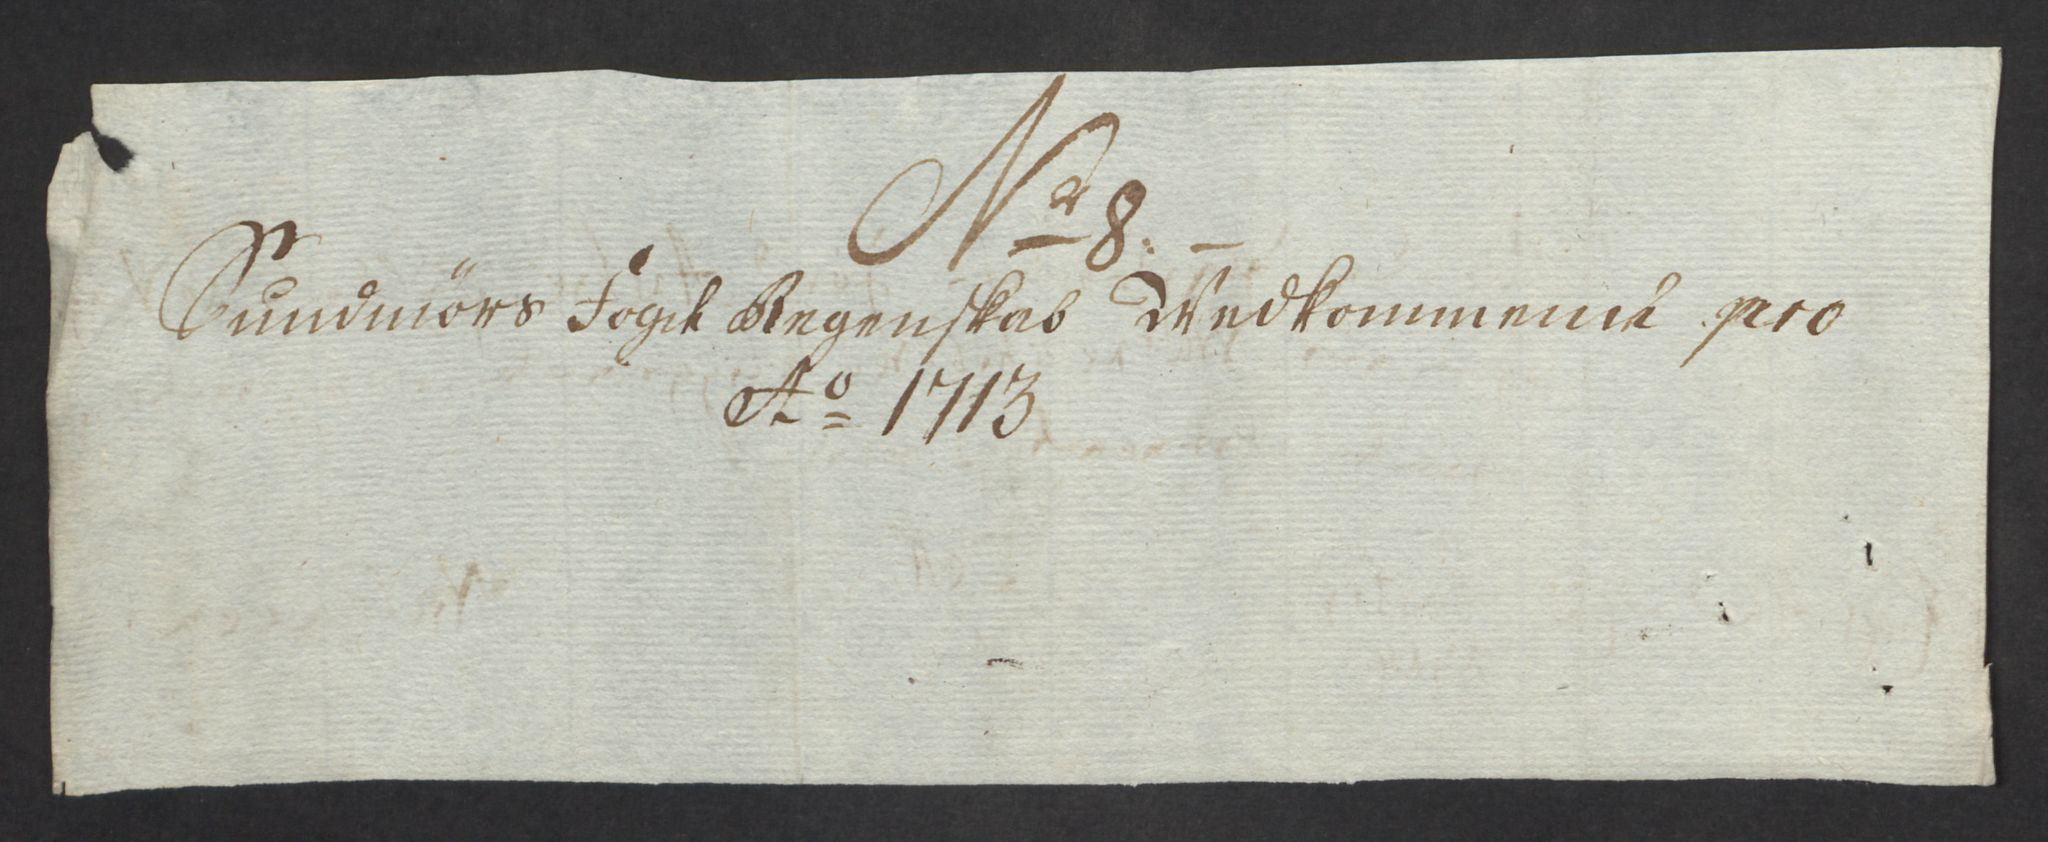 Nr 8. –
Sundmörs Fogd Regenskab Vedkommend pro
Ao 1713